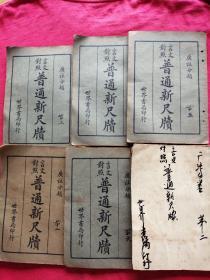 廣註分類
言文對照
普通新尺牘
第三
世界書局印行
廣註分類
言文對照
普通新尺牘
世界書局印行
廣註分類
言文對照
普通新尺牘
第五
世界書局印行
廣註分類
言文對照
普通新尺牘
世界書局印行
廣註分類
言文對照
普通新尺牘
世界書局印行
普通新尺牘
第二
世界書局印行